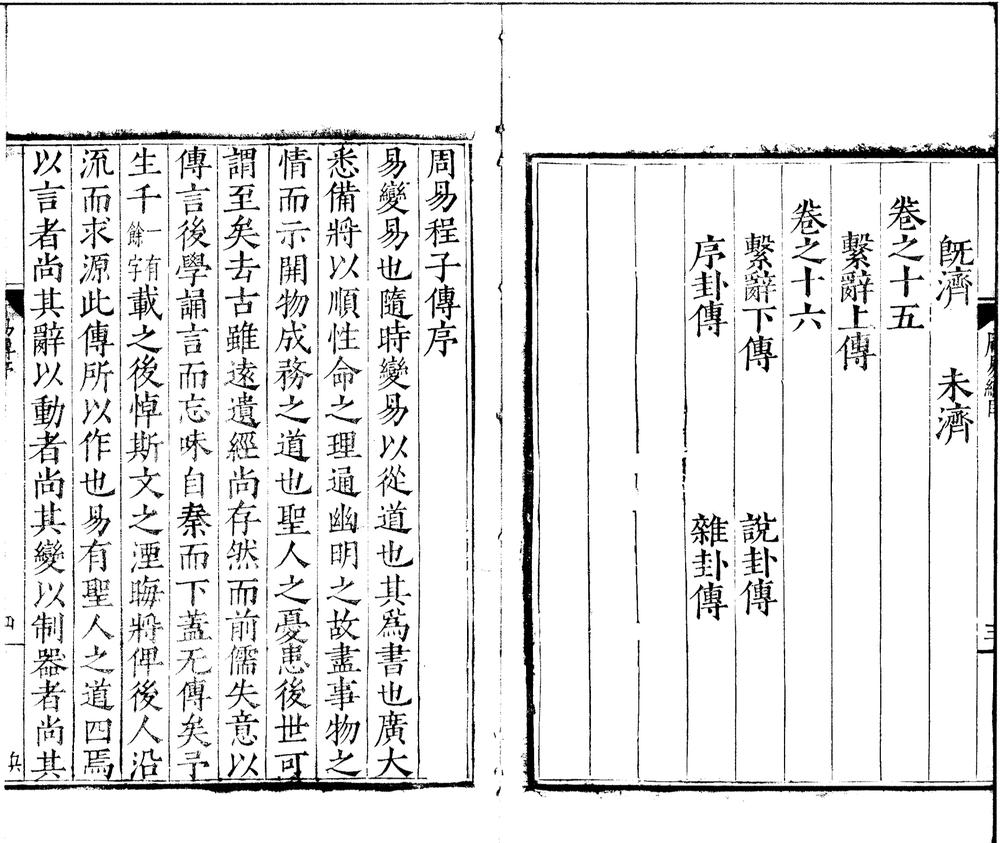 旣濟　未濟
卷之十五
繫辭上傳
卷之十六
繫辭下傳　說卦傳
序卦傳　雜卦傳
三
周易程子傳序
易變易也隨時變易以從道也其爲書也廣大
悉備將以順性命之理通幽明之故盡事物之
情而示開物成務之道也聖人之憂患後世可
謂至矣去古雖遠遺經尚存然而前儒失意以
傳言後學誦言而忘味自秦而下蓋无傳矣予
生千一有餘字載之後悼斯文之湮晦將俾後人沿
流而求源此傳所以作也易有聖人之道四焉
以言者尚其辭以動者尚其變以制器者尚其